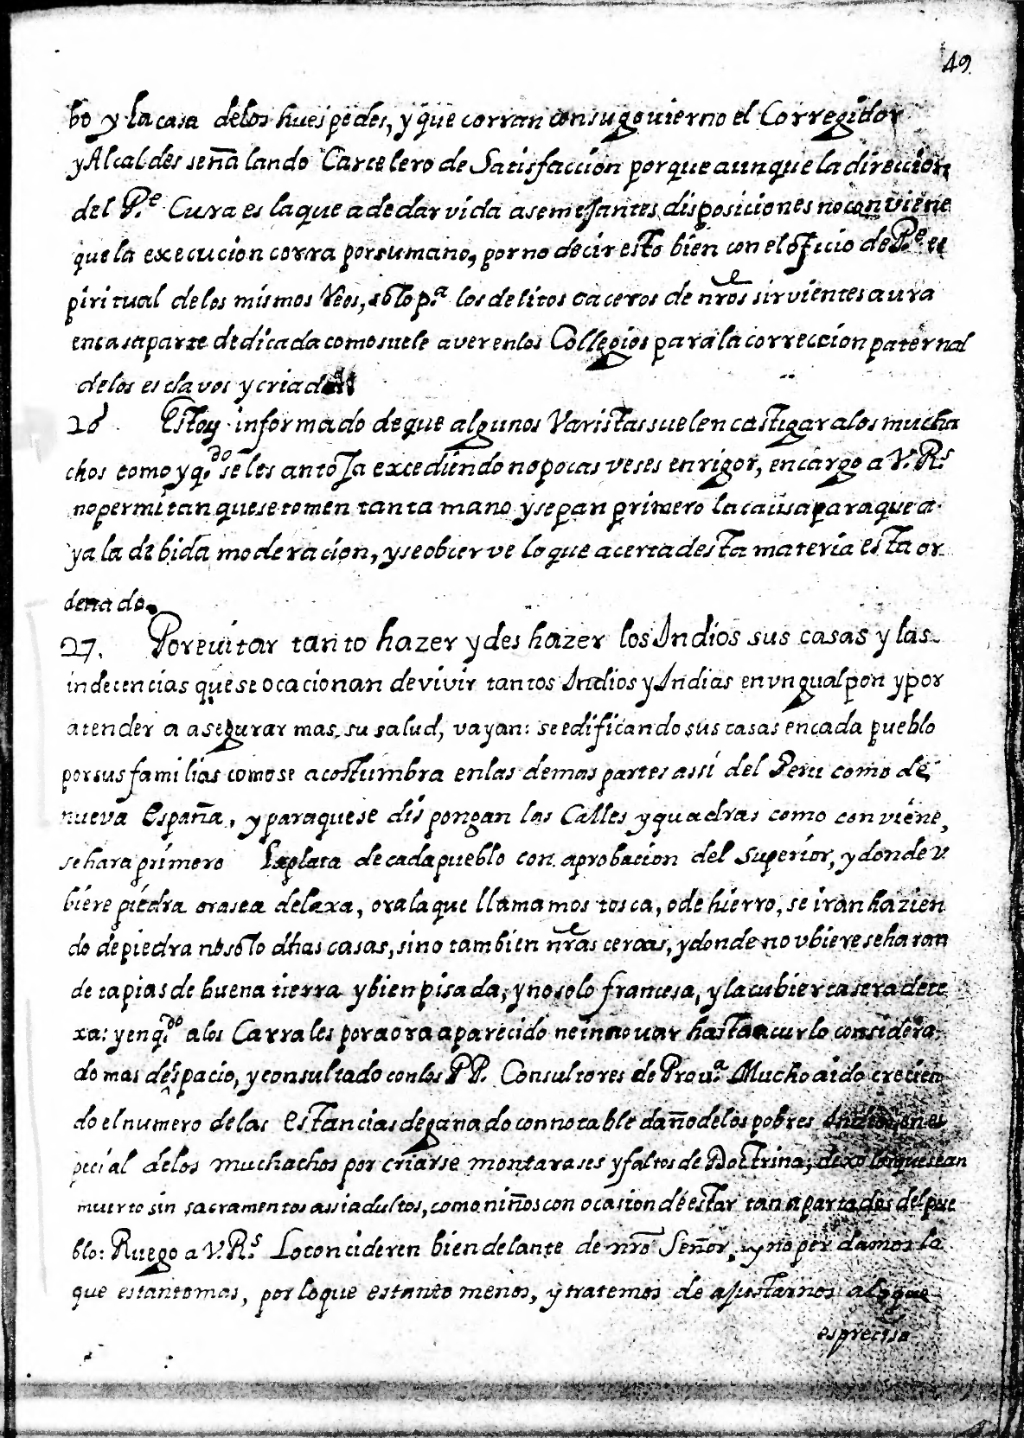 49
bo y la casa delos huespedes, y que corran con su gouierno el Corregidor
y Alcaldes señalando Carcelero de Satisfaccion porque aunque la direccion
del P.e Cura es la que a de dar vida a semejantes disposiciones no conviene
que la execucion corra por su mano, por no decir esto bien con el oficio de P.e es
piritual de los mismos Reos, solo p.a los delitos caceros de nr̃os sirvientes aura
en casa parte dedicada como suele aver en los Collegios para la correccion paternal
de los esclavos y criados
26 Estoy informado de que algunos Varistas suelen castigar a los mucha
chos como y q.do se les antoja excediendo no pocas veses en rigor, encargo a V.R.s
no permitan que se tomen tanta mano y sepan primero la causa para que a
ya la debida moderacion, y se observe lo que acerca desta materia esta or
denado.
27. Por euitar tanto hazer y des hazer los Indios sus casas y las
indecencias que se ocacionan de vivir tantos Indios y Indias en vn gualpon y por
atender a asegurar mas su salud, vayan: se edificando sus casas en cada pueblo
por sus familias como se acostumbra en las demas partes assi del Peru como de
nueva España, y para que se dispongan las Calles y quadras como conviene,
se hara primero La planta de cada pueblo con aprobacion del Superior, y donde v
biere piedra ora sea de laxa, ora la que llamamos tosca, o de hierro, se iran hazien
do de piedra no solo dhas casas, sino tambien nr̃as cercas, y donde no vbiere se haran
de tapias de buena tierra y bien pisada, y no solo francesa, y la cubierta sera de te
xa: y en q.do a los Carrales por aora a parecido ne innouar hasta acurlo considera
do mas despacio, y consultado con los PP. Consultores de Prou.a Mucho a ido crecien
do el numero de las estancias de ganado con notable daño de los pobres Indios en es
pecial de los muchachos por criarse montarases y faltos de Doctrina, dexo los que sean
muerto sin sacramentos assi adultos, como niños con ocasion de estar tan apartados del pue
blo: Ruego a V.R.s Lo concideren bien delante de nr̃o Señor, y no perdamos lo
que es tanto mas, por lo que es tanto menos, y tratemos de ajustarnos a lo que
es preciso